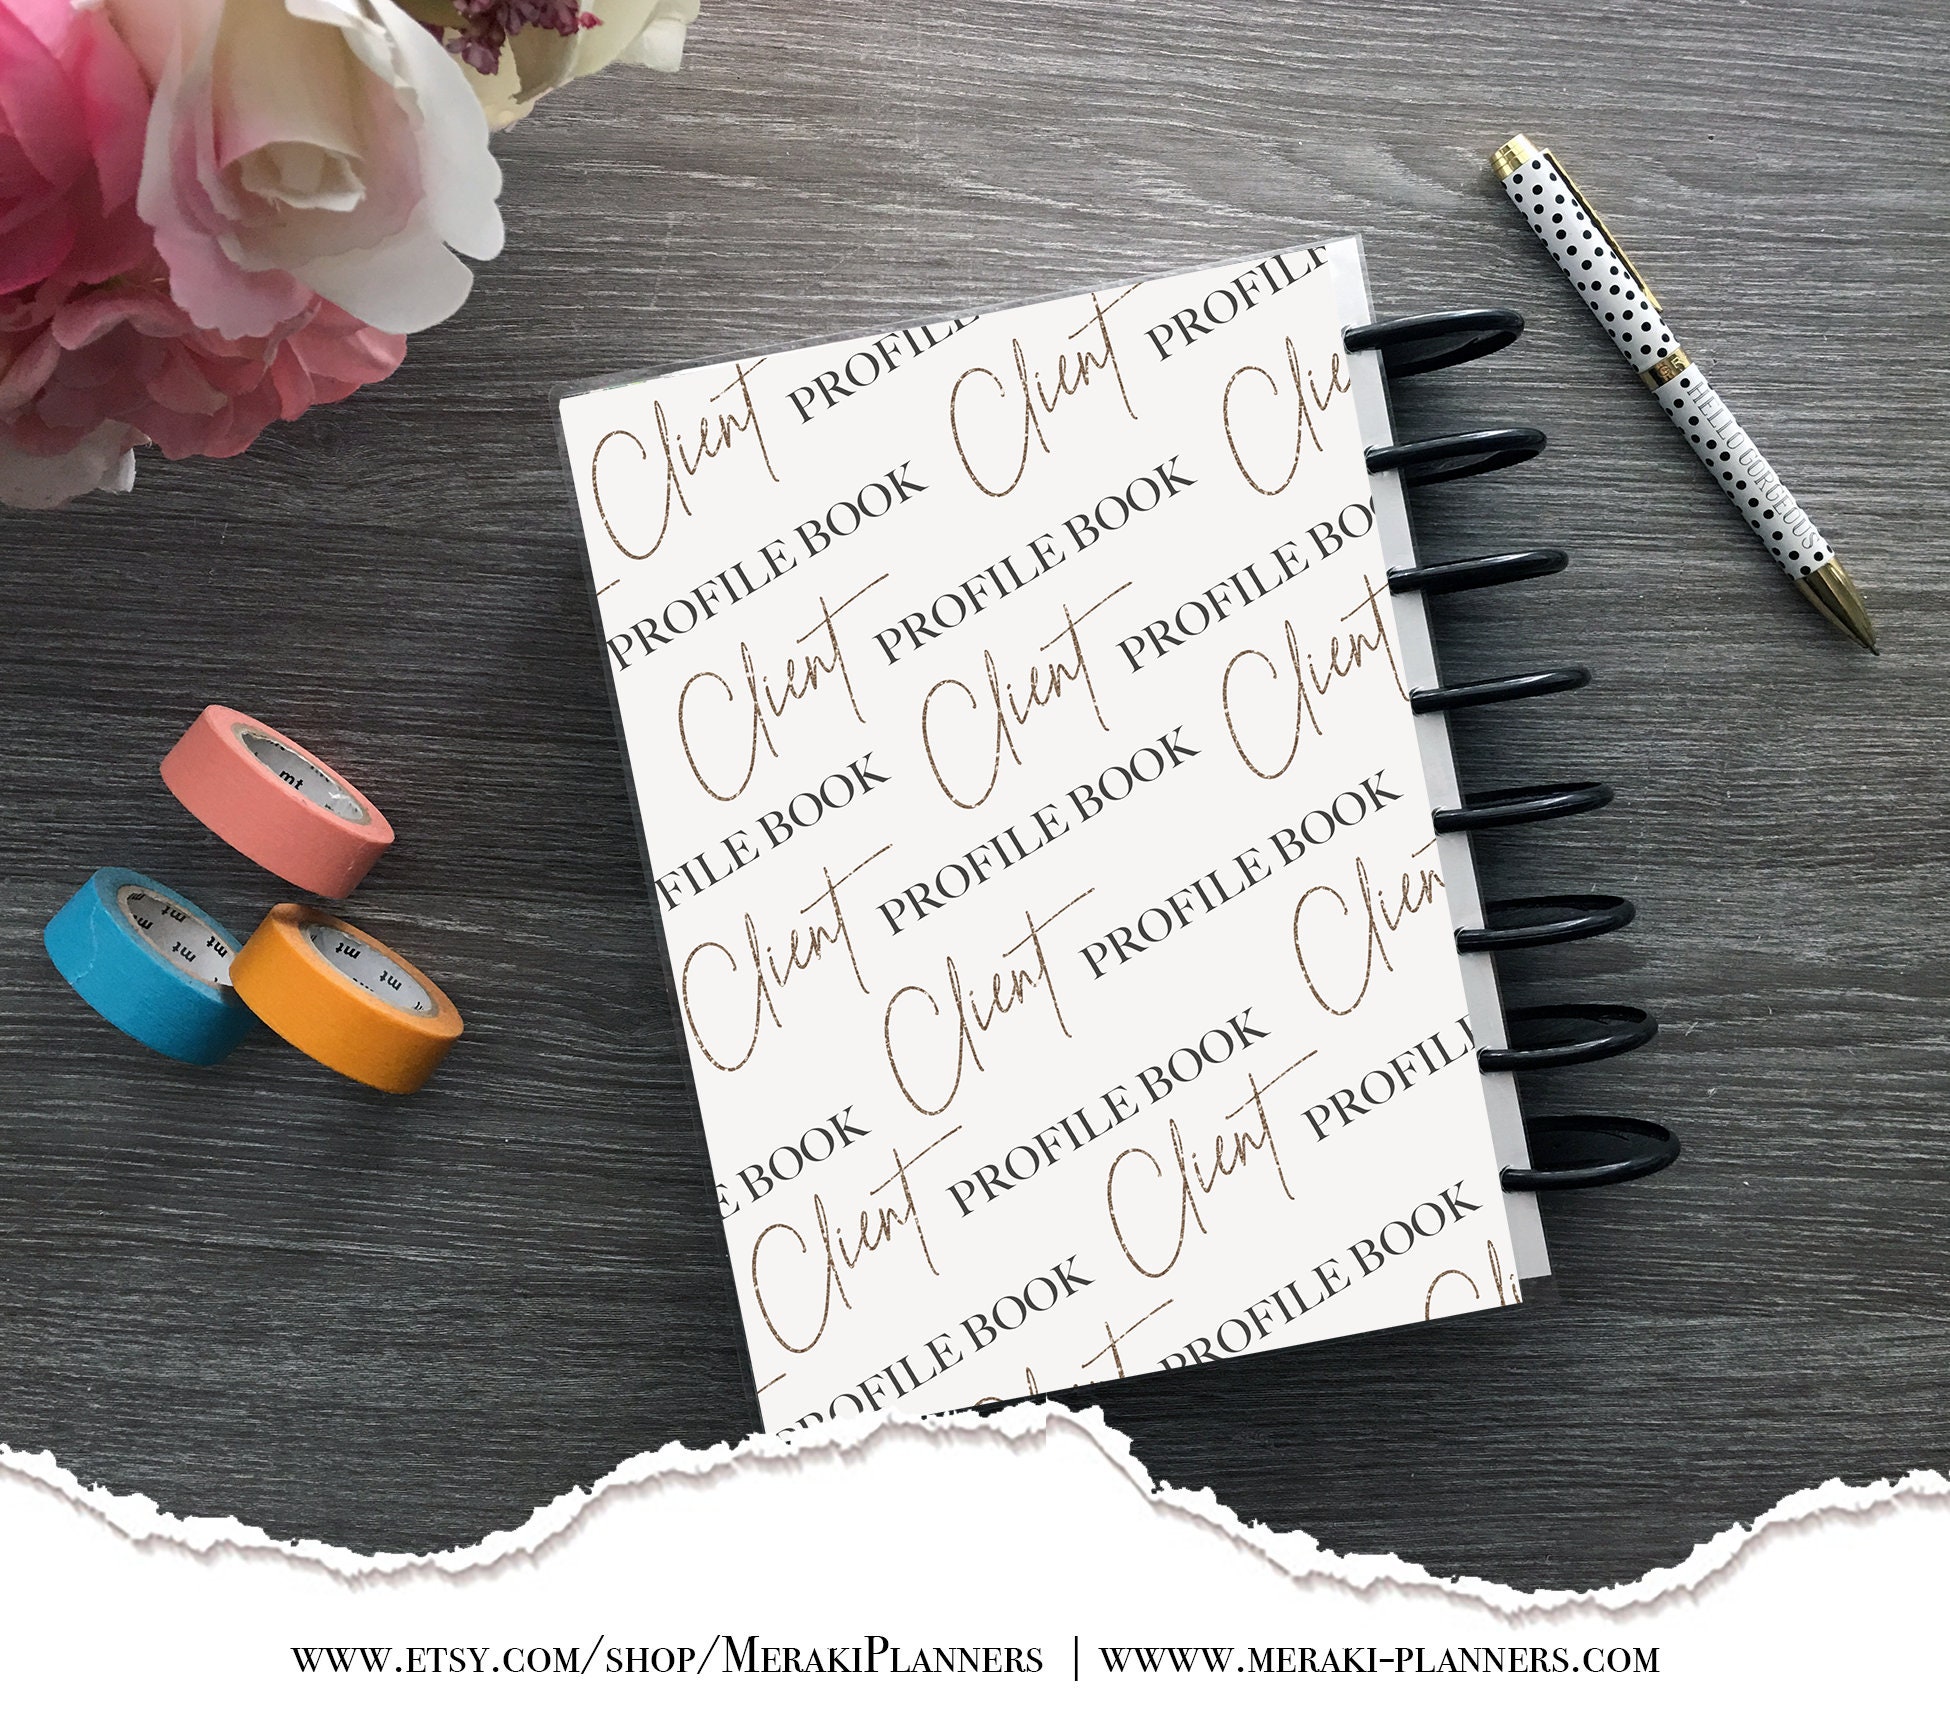 Client PROFILE
Client PROFILE
PROFILE BOOK Client
Client PROFILE BOOK
FILE BOOK Client PROFILE BOOK
Client PROFILE BOOK Client
E BOOK Client PROFILE BOOK
Client PROFILE BOOK Clien
PROFILE BOOK Client PROFILE
PROFILE BOOK
HELLO GORGEOUS
mt
mt
mt
www.etsy.com/shop/MerakiPlanners | wwww.meraki-planners.com